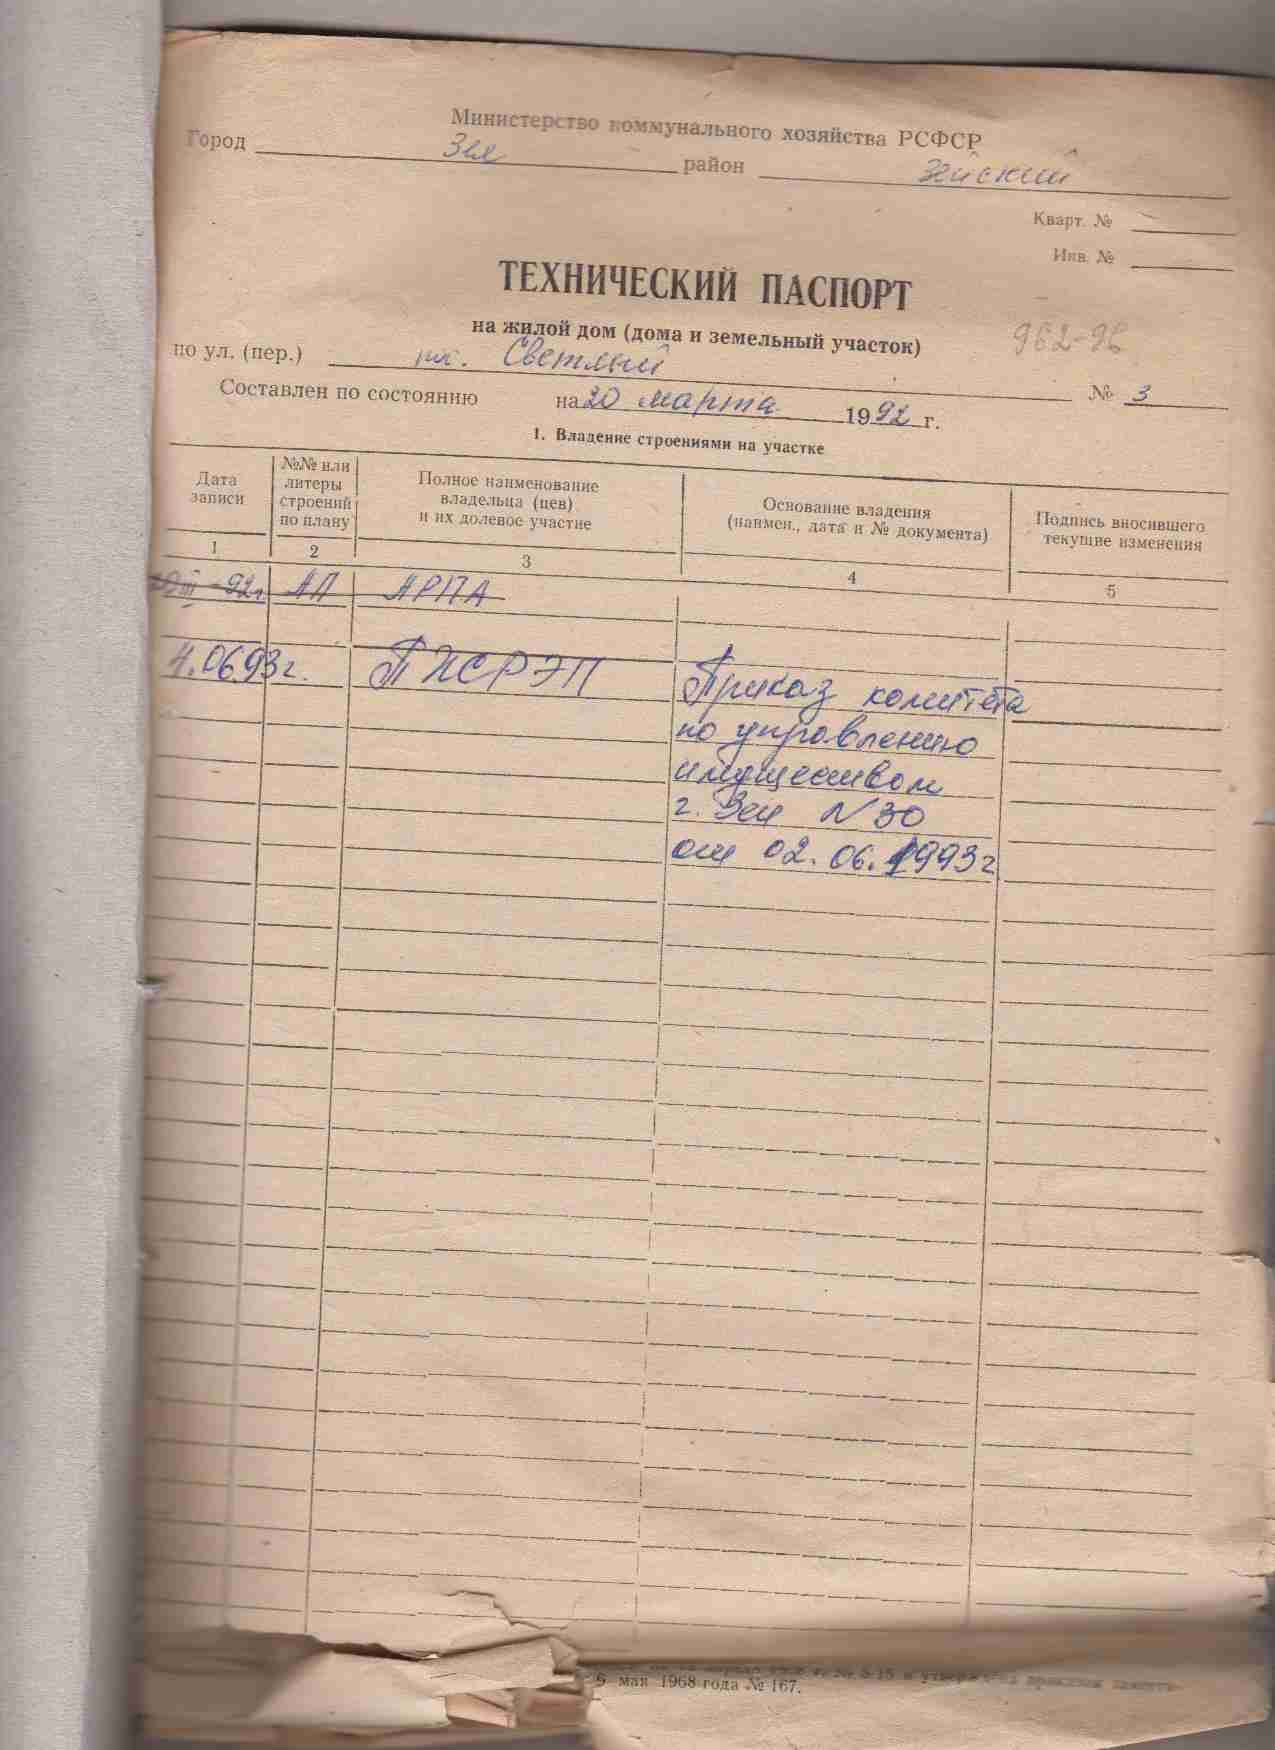 Министерство коммунального хозяйства РСФСР
Город Зея район Зейский
Кварт. №
Инв. №
ТЕХНИЧЕСКИЙ ПАСПОРТ
на жилой дом (дома и земельный участок)
962-96
по ул. (пер.) Светлый № 3
Составлен по состоянию на 20 марта 1992 г.
1. Владение строениями на участке
Дата записи
№№ или литеры строений по плану
Полное наименование владельца (цев) и их долевое участие
Основание владения (наимен., дата и № документа)
Подпись вносившего текущие изменения
1 2 3 4 5
92г. АП АРПА
4.06.93г. ПЖРЭП Приказ комитета
по управлению
имуществом
г. Зеи N 30
от 02.06.1993г
мая 1968 года № 167.